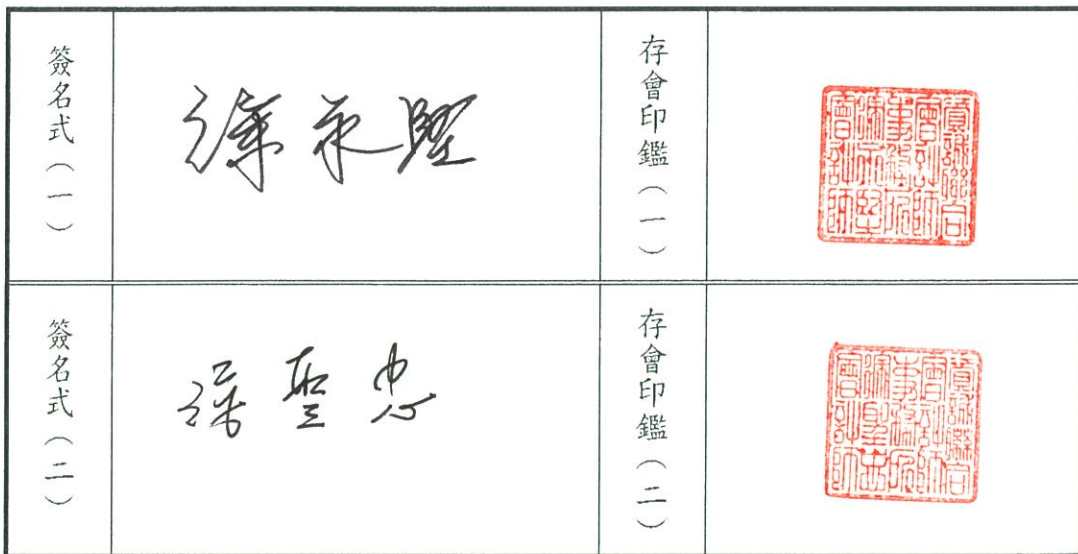 簽名式（一）
徐永堅
存會印鑑（一）
資誠聯合
會計師
事務所
徐永堅
會計師
簽名式（二）
徐聖忠
存會印鑑（二）
資誠聯合
會計師
事務所
徐聖忠
會計師